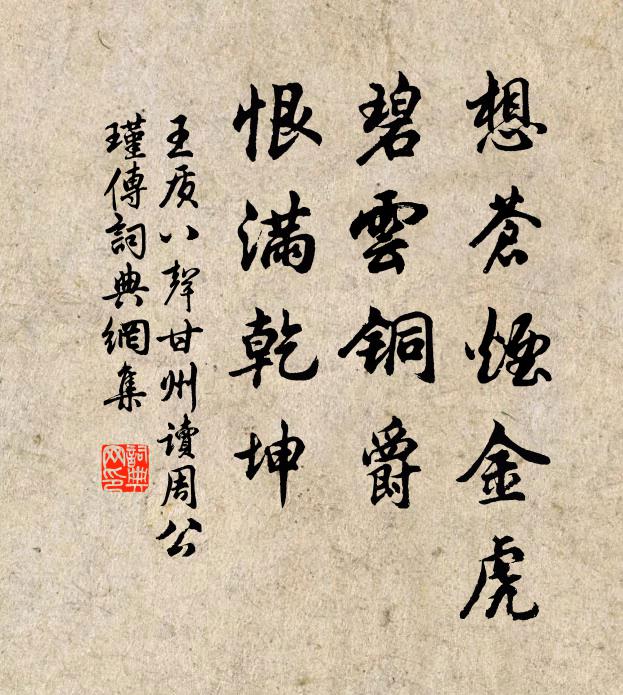 想蒼煙金虎
碧雲銅爵
恨滿乾坤
王质八聲甘州讀周公
瑾傳詞典網集
詞典网印